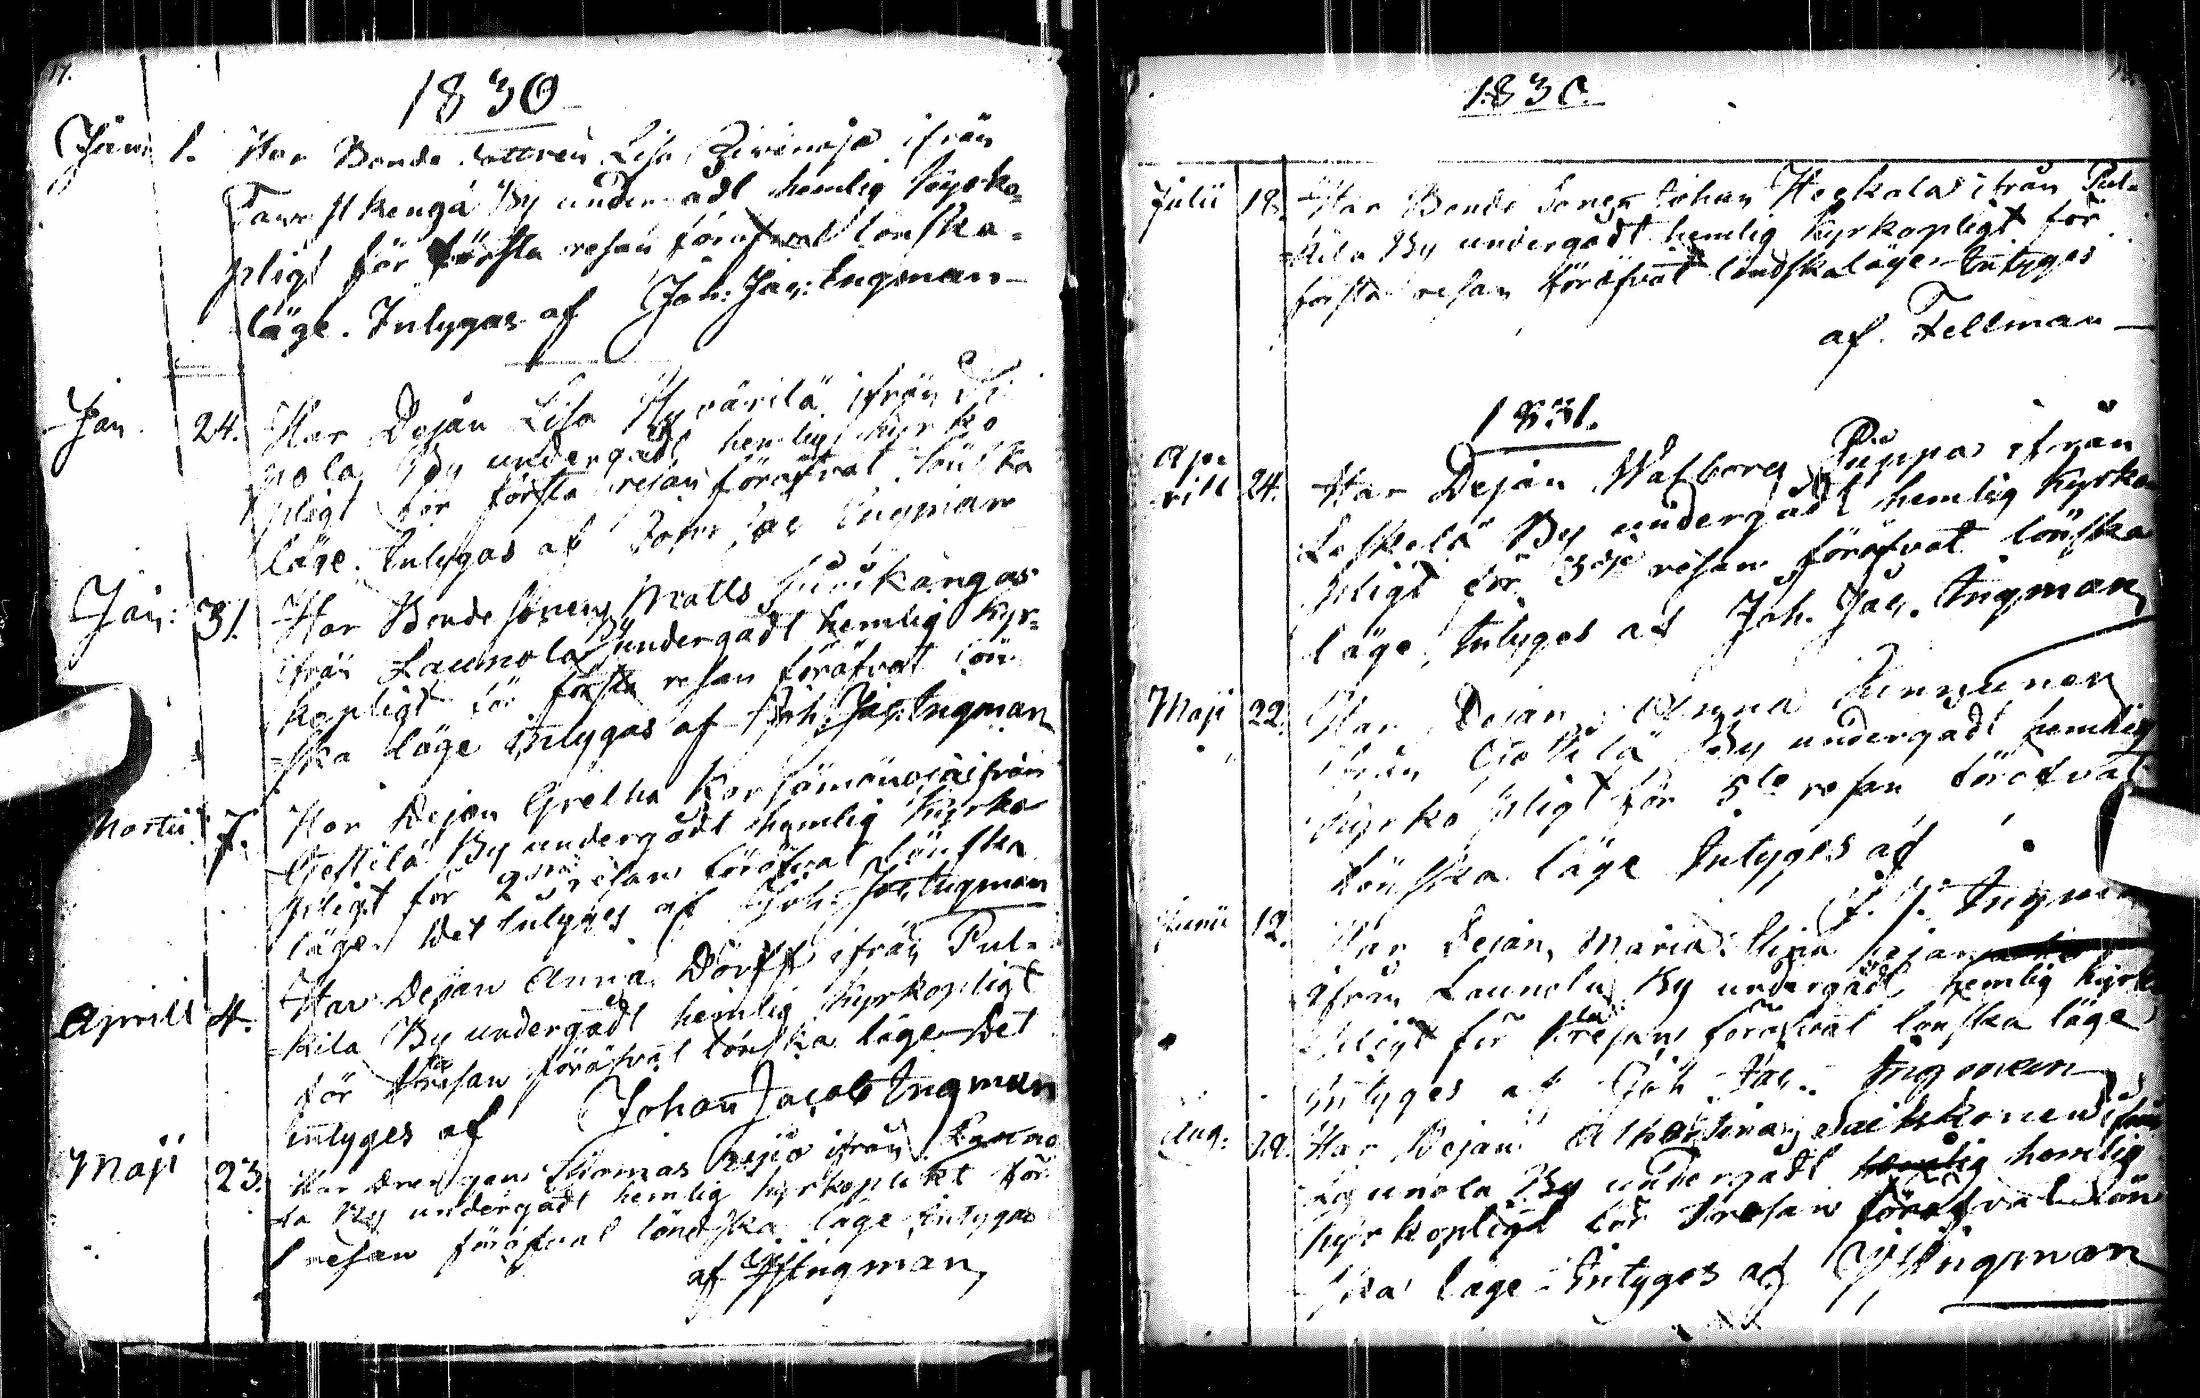 17.
1830
Janu 1. Har Bonde dottren Lisa ifrån
By undergådt hemlig kyrko=
pligt för första resan föröfvat lönska=
läge. Intygas af Joh: Jac: Ingman
Jan. 24. Har Dejan Lisa Hyvärilä ifrån Pi
pola By undergådt hemlig kyrko
pligt för första resan föröfvat lönska
läge. Intygas af Johan Jac Ingman
Jan: 31. Har Bonde sonen Matts Kangas
ifrån Laumola By undergådt hemlig kyr=
kopligt för första resan föröfvat lön
=ska läge Intygas af Joh: Jac: Ingman
Martii 7. Har Dejan Gretha Korsämönoja ifrån
Gestilä By undergådt hemlig kyrko
pligt för 2dra resan föröfvat lönska
läge. Det Intyges af Joh: Jac Ingman
Aprill 4. Har Dejan Anna Dorff ifrån Pul=
=kila By undergådt hemlig kyrkopligt
för 1sta resan föröfvat lönska läge Det
intyges af Johan Jacob Ingman
Maji 23. Har drengen Thomas ifrån
la By undergådt hemlig kyrkoplikt för
1 resan föröfvat löndska läge Intygas
af JJIngman,
1830.
Julii 18. Har Bonde Sonen Johan Heckala ifrån Pul=
=kila By undergådt hemlig kyrkopligt för
första resan föröfvat löndskaläge Intyges
af. Fellman
1831.
Ap=
rill 24. Har Dejan Walborg Puppa ifrån
Leskelä By undergådt hemlig kyrko
pligt för 3dje resan föröfvat lönska
läge, Intyges af Joh. Jac. Ingman
Maji 22. Har Dejan Anna Junnunen
ifrån By undergådt hemlig
kyrko pligt för 5te resan föröfvat
lönska läge Intyges af
J. J. Ingman
Junii 12. Har Dejan, Maria Elina
ifrån Laumola By undergådt hemlig kyrko
pligt för 1sta resan föröfvat lönska läge
Intyges af Joh Jac. Ingman
Aug. 28. Har Dejan Albertina ifrån
Laumola By undergådt hemlig hemlig
kyrkopligt för 1 resan föröfvat lön
ska läge Intyges af JJIngman